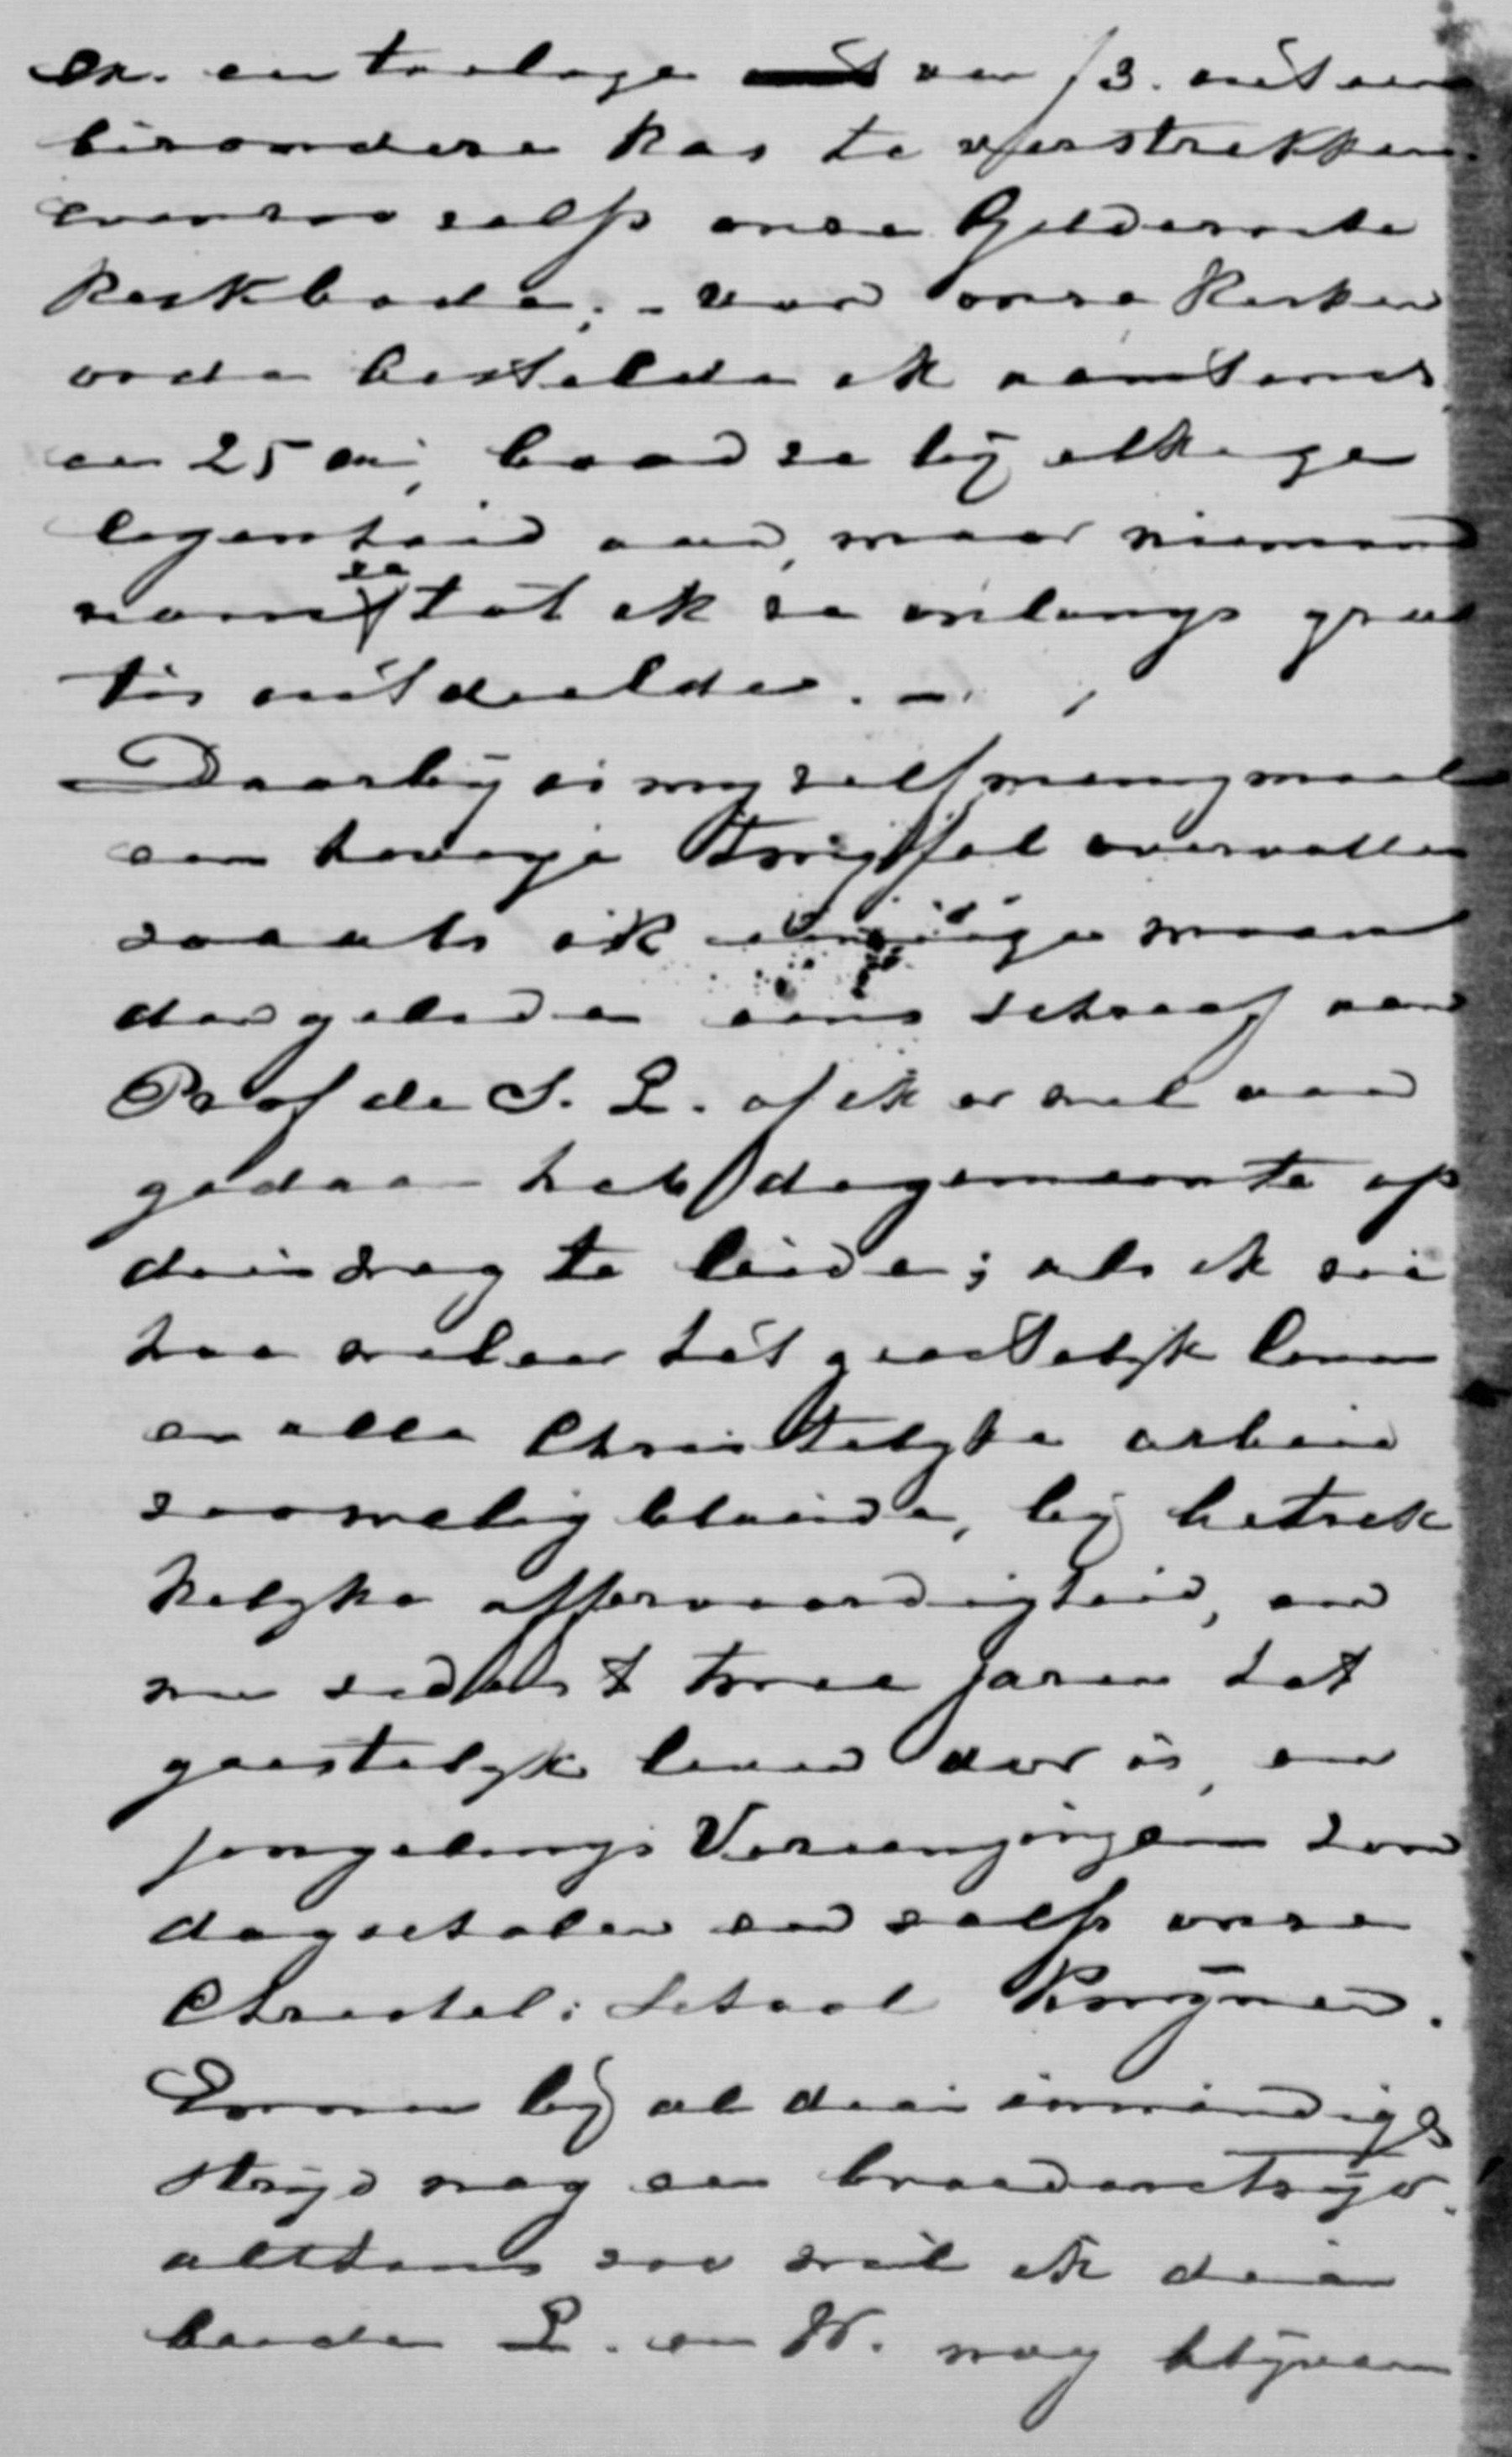 en. een toelage van f3. uit een
bizondere kas te verstrekken.
evenzoo zelfs onze Geldersche
Kerkbode; - van onze Kerken
orde bestelde ik aanstonds
een 25 ex; bood ze bij elke ge
legenheid aan, maar niemand
nam ze tot ik ze onlangs gra
tis uitdeelde. -
Daarbij is my zelf menigmaal
een hevige Twijffel overvallen
zooals ik eenige maan
den geleden eens schreef aan
Prof de S. L. of ik er wel aan
gedaan heb de gemeente op
dien weg te leiden; als ik zie
hoe weleer het geestelyk leven
en alle Christelyke arbeid
zoo welig bloeide, bij betrek
kelyke offervaardigheid, en
nu sedert twee jaren het
geestelyk leven dor is, en
jongelings Vereenigingen zon
dagscholen en zelfs onze
Christel: School Kwijnen.
Komen bij al dien inwendige
strijd nog een broederstrijd.
althans zoo wil ik die
beide L. en W. nog blijven